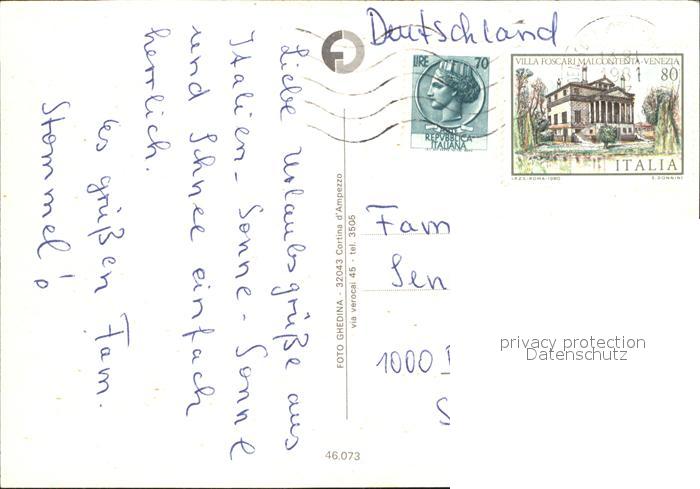 Liebe Urlaubsgrüße aus
Italien - Sonne - Sonne
und Schnee einfach
herrlich.
es grüßen Fam.
Stommel!
FOTO GHEDINA - 32043 Cortina d'Ampezzo
via verocai 45 - tel. 3505
46.073
Deutschland
LIRE 70
REPVBBLICA
ITALIANA
VILLA FOSCARI MALCONTENTA-VENEZIA
80
ITALIA
I.P.Z.S.-ROMA-1980
E. DONNINI
1981
Fam
Sen
1000
S
privacy protection
Datenschutz